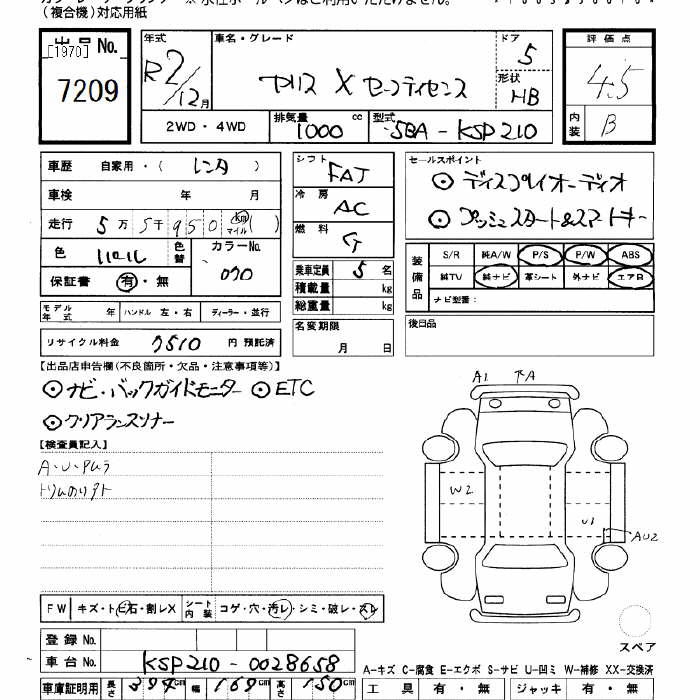 (複合機)対応用紙
出品No.
[1970]
7209
年式 R2/12月
車名・グレード ヤリス X セーフティセンス
ドア 5
形状 HB
評価点 4.5
内装 B
2WD・4WD
排気量 1000 cc
型式 5BA-KSP210
車歴 自家用・(レンタ)
車検 年 月
走行 5万5千950 km マイル ( )
色 色替
カラーNo. 070
保証書 有・無
シフト FAT
冷房 AC
燃料 G
乗車定員 5 名
積載量 kg
総重量 kg
名変期限 月 日
セールスポイント
ディスプレイオーディオ
プッシュスタート&スマートキー
装備品
S/R 純A/W P/S P/W ABS
純TV 純ナビ 革シート 外ナビ エアB
ナビ型番:
後日品
モデル年式 年 ハンドル 左・右 ディーラー・並行
リサイクル料金 7510 円 預託済
【出品店申告欄(不良箇所・欠品・注意事項等)】
ナビ・バックガイドモニター ETC
クリアランスソナー
【検査員記入】
A・U・アムラ
A1 ↑A
W2
U1
AU2
スペア
FW キズ・トビ石・割レX
シート内装 コゲ・穴・汚レ・シミ・破レ・スレ
登録No.
車台No. KSP210-0028658
A-キズ C-腐食 E-エクボ S-サビ U-凹ミ W-補修 XX-交換済
車庫証明用 長さ 394cm 幅 169cm 高さ 150cm
工具 有・無 ジャッキ 有・無